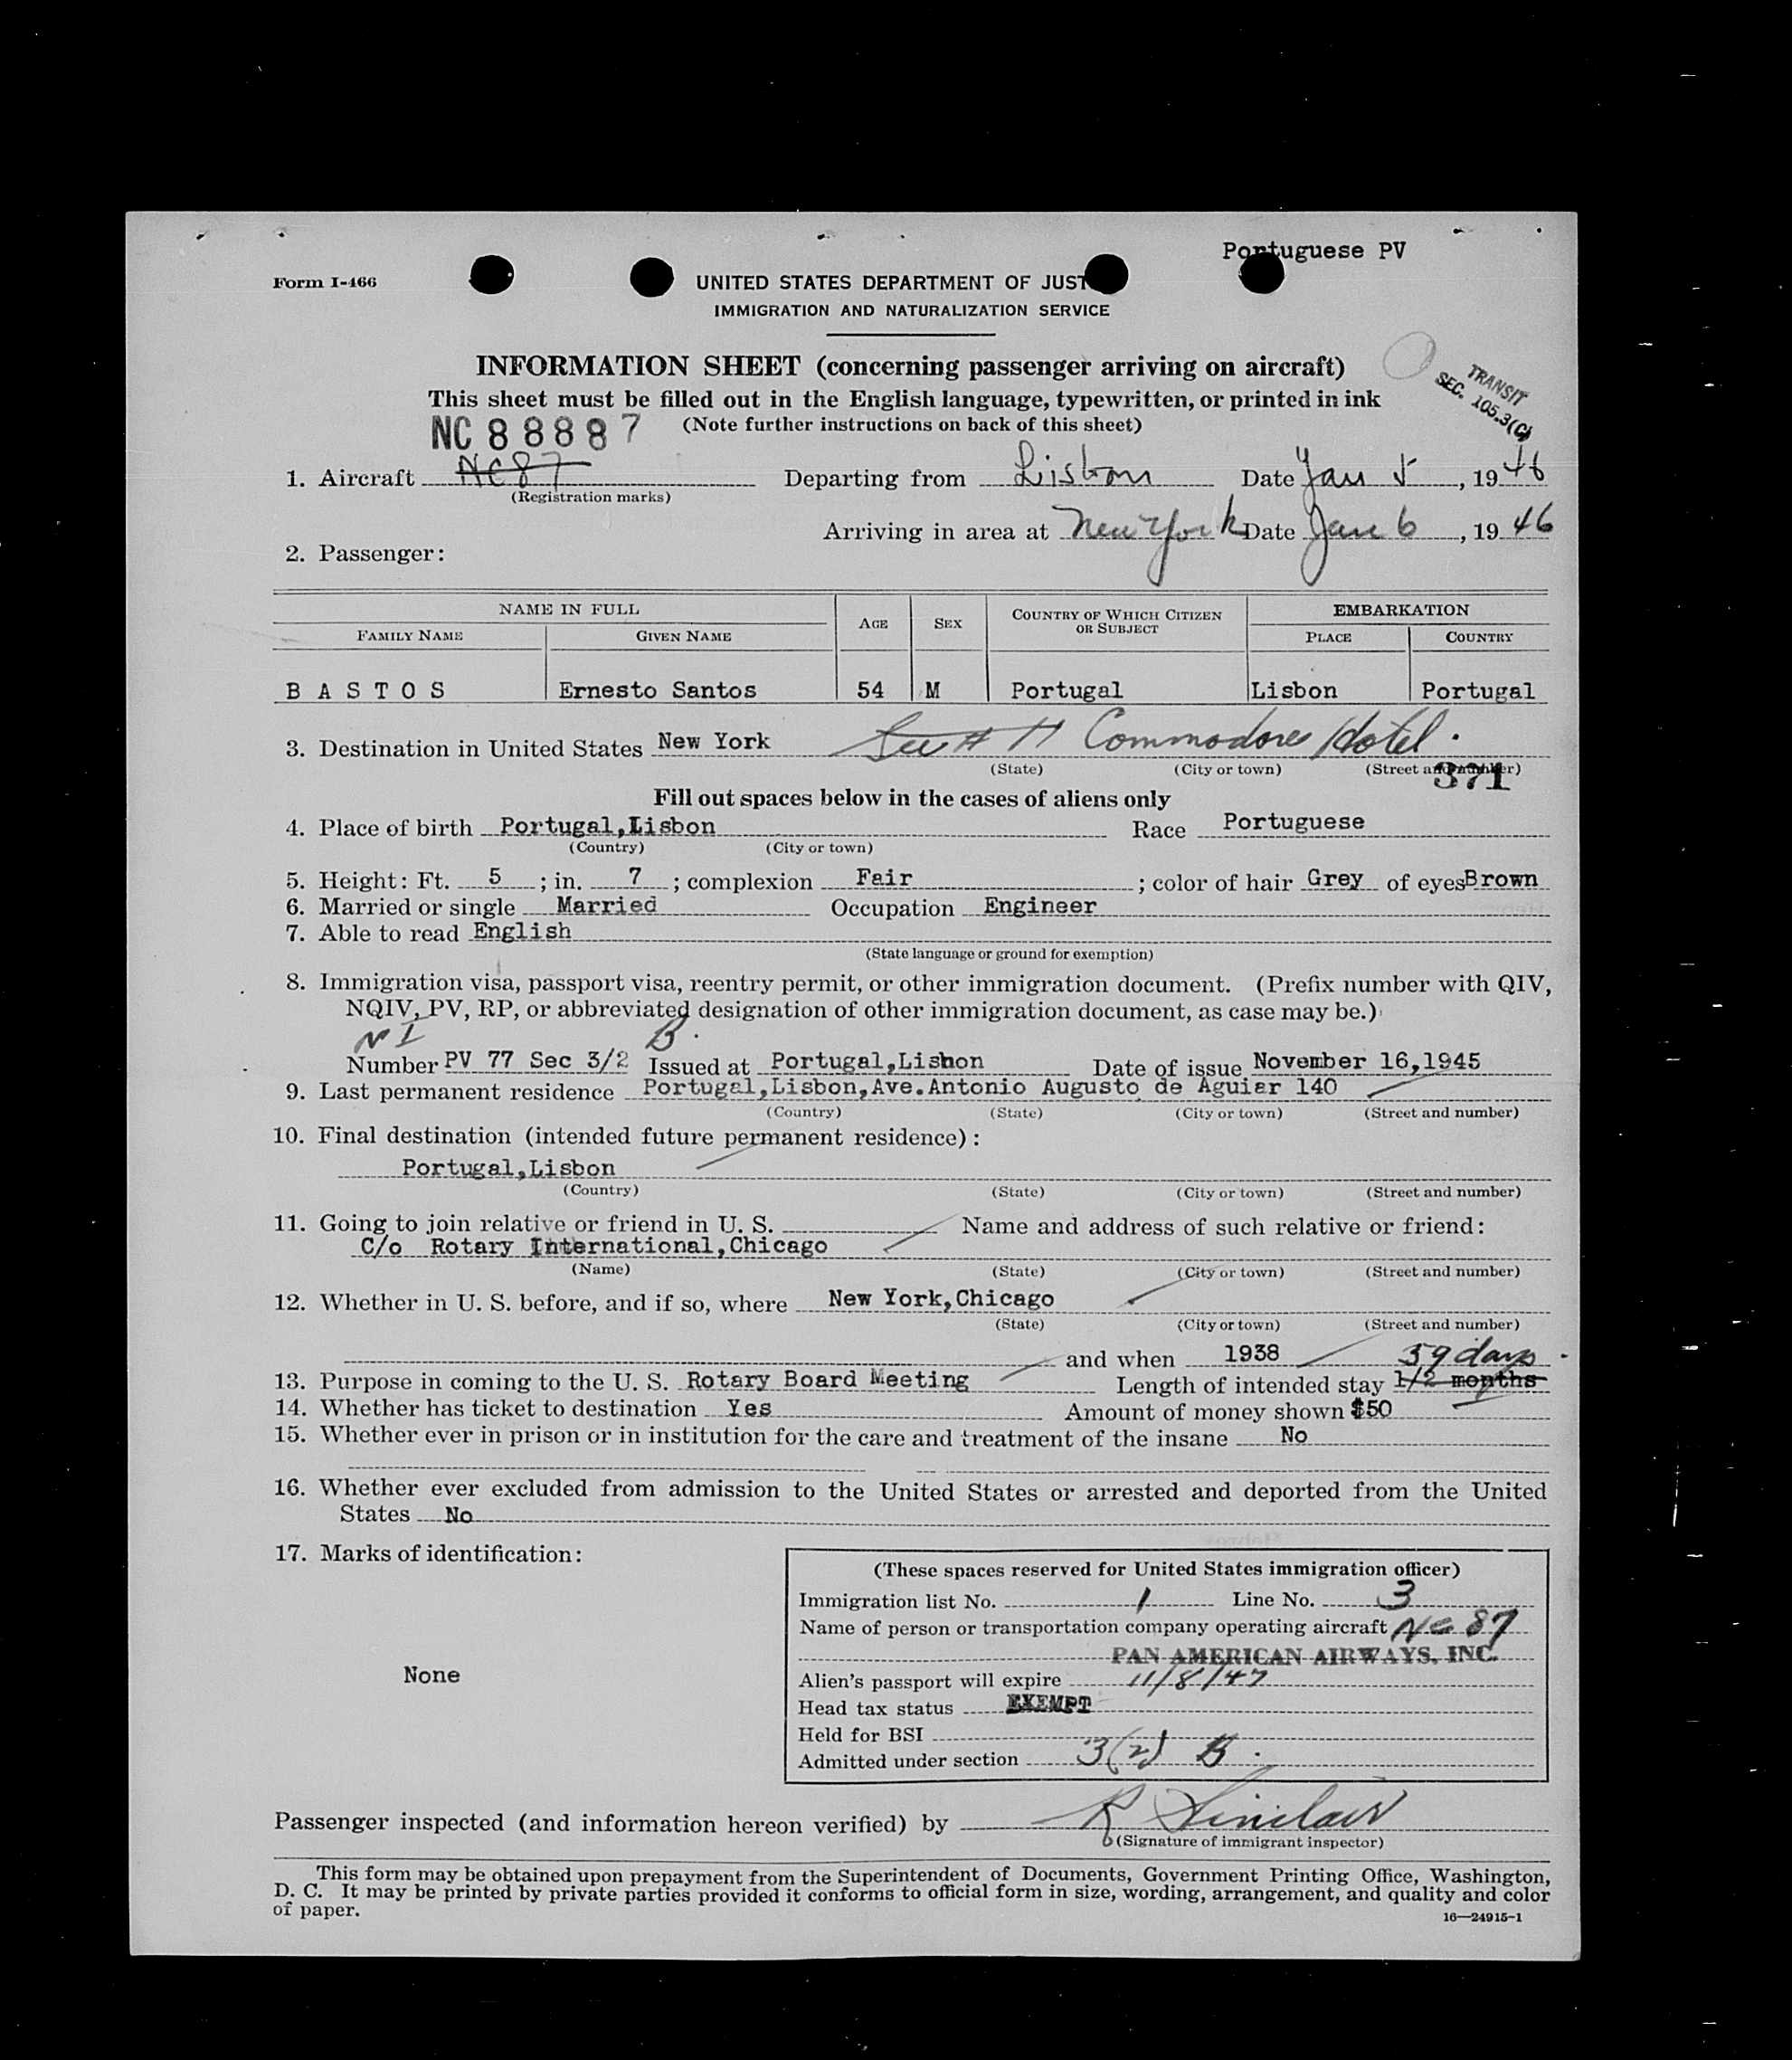 Portuguese PV
Form I-466
UNITED STATES DEPARTMENT OF JUST
IMMIGRATION AND NATURALIZATION SERVICE
INFORMATION SHEET (concerning passenger arriving on aircraft)
This sheet must be filled out in the English language, typewritten, or printed in ink
TRANSIT
SEC. 105.3(C)
NC 88887 (Note further instructions on back of this sheet)
1. Aircraft NC87 Departing from Lisbon Date Jan 5, 1946
(Registration marks)
Arriving in area at New York Date Jan 6, 1946
2. Passenger:
NAME IN FULL AGE SEX COUNTRY OF WHICH CITIZEN OR SUBJECT EMBARKATION
FAMILY NAME GIVEN NAME PLACE COUNTRY
B A S T O S Ernesto Santos 54 M Portugal Lisbon Portugal
3. Destination in United States New York See # 11 Commodore Hotel.
(State) (City or town) (Street and number)
371
Fill out spaces below in the cases of aliens only
4. Place of birth Portugal,Lisbon Race Portuguese
(Country) (City or town)
5. Height: Ft. 5; in. 7; complexion Fair; color of hair Grey of eyes Brown
6. Married or single Married Occupation Engineer
7. Able to read English
(State language or ground for exemption)
8. Immigration visa, passport visa, reentry permit, or other immigration document. (Prefix number with QIV,
NQIV, PV, RP, or abbreviated designation of other immigration document, as case may be.)
N I B.
Number PV 77 Sec 3/2 Issued at Portugal,Lisbon Date of issue November 16,1945
9. Last permanent residence Portugal,Lisbon,Ave.Antonio Augusto de Aguiar 140
(Country) (State) (City or town) (Street and number)
10. Final destination (intended future permanent residence):
Portugal,Lisbon
(Country) (State) (City or town) (Street and number)
11. Going to join relative or friend in U. S. Name and address of such relative or friend:
C/o Rotary International,Chicago
(Name) (State) (City or town) (Street and number)
12. Whether in U. S. before, and if so, where New York,Chicago
(State) (City or town) (Street and number)
and when 1938 59 days
13. Purpose in coming to the U. S. Rotary Board Meeting Length of intended stay 1/2 months
14. Whether has ticket to destination Yes Amount of money shown $50
15. Whether ever in prison or in institution for the care and treatment of the insane No
16. Whether ever excluded from admission to the United States or arrested and deported from the United
States No
17. Marks of identification:
None
(These spaces reserved for United States immigration officer)
Immigration list No. 1 Line No. 3
Name of person or transportation company operating aircraft NC 87
PAN AMERICAN AIRWAYS, INC.
Alien's passport will expire 11/8/47
Head tax status EXEMPT
Held for BSI
Admitted under section 3(2) B.
Passenger inspected (and information hereon verified) by R Sinclair
(Signature of immigrant inspector)
This form may be obtained upon prepayment from the Superintendent of Documents, Government Printing Office, Washington,
D. C. It may be printed by private parties provided it conforms to official form in size, wording, arrangement, and quality and color
of paper.
16—24915-1